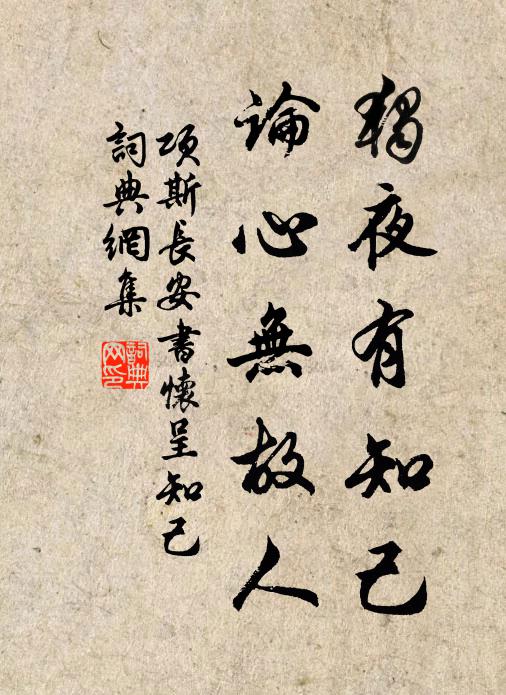 獨夜有知己
論心無故人
項斯長安書懷呈知己
詞典網集
詞典网印